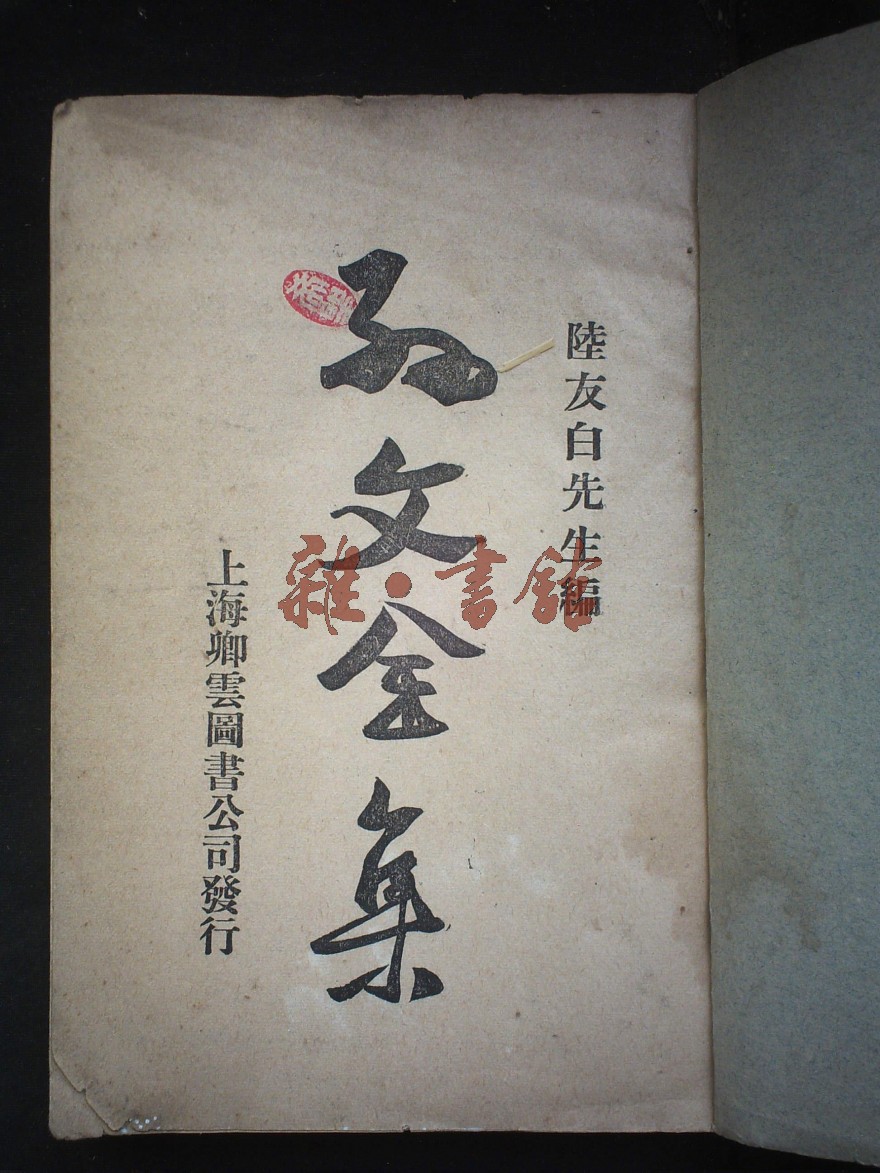 陸友白先生編
孫文全集
上海卿雲圖書公司發行
雜·書館